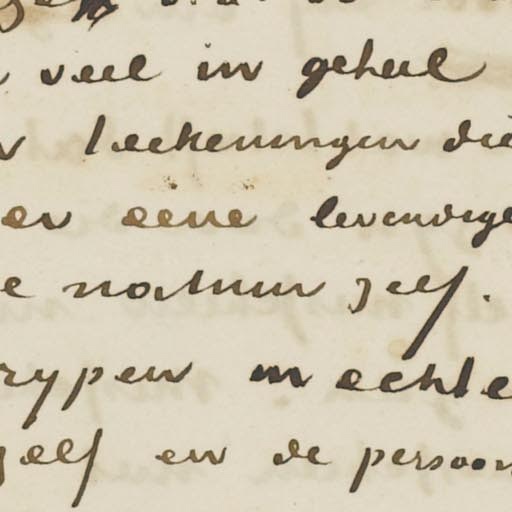 veel in geheel
teekeningen die
en eene levendige
e natuur zelf.
rypen en echte
zelf en de persoon